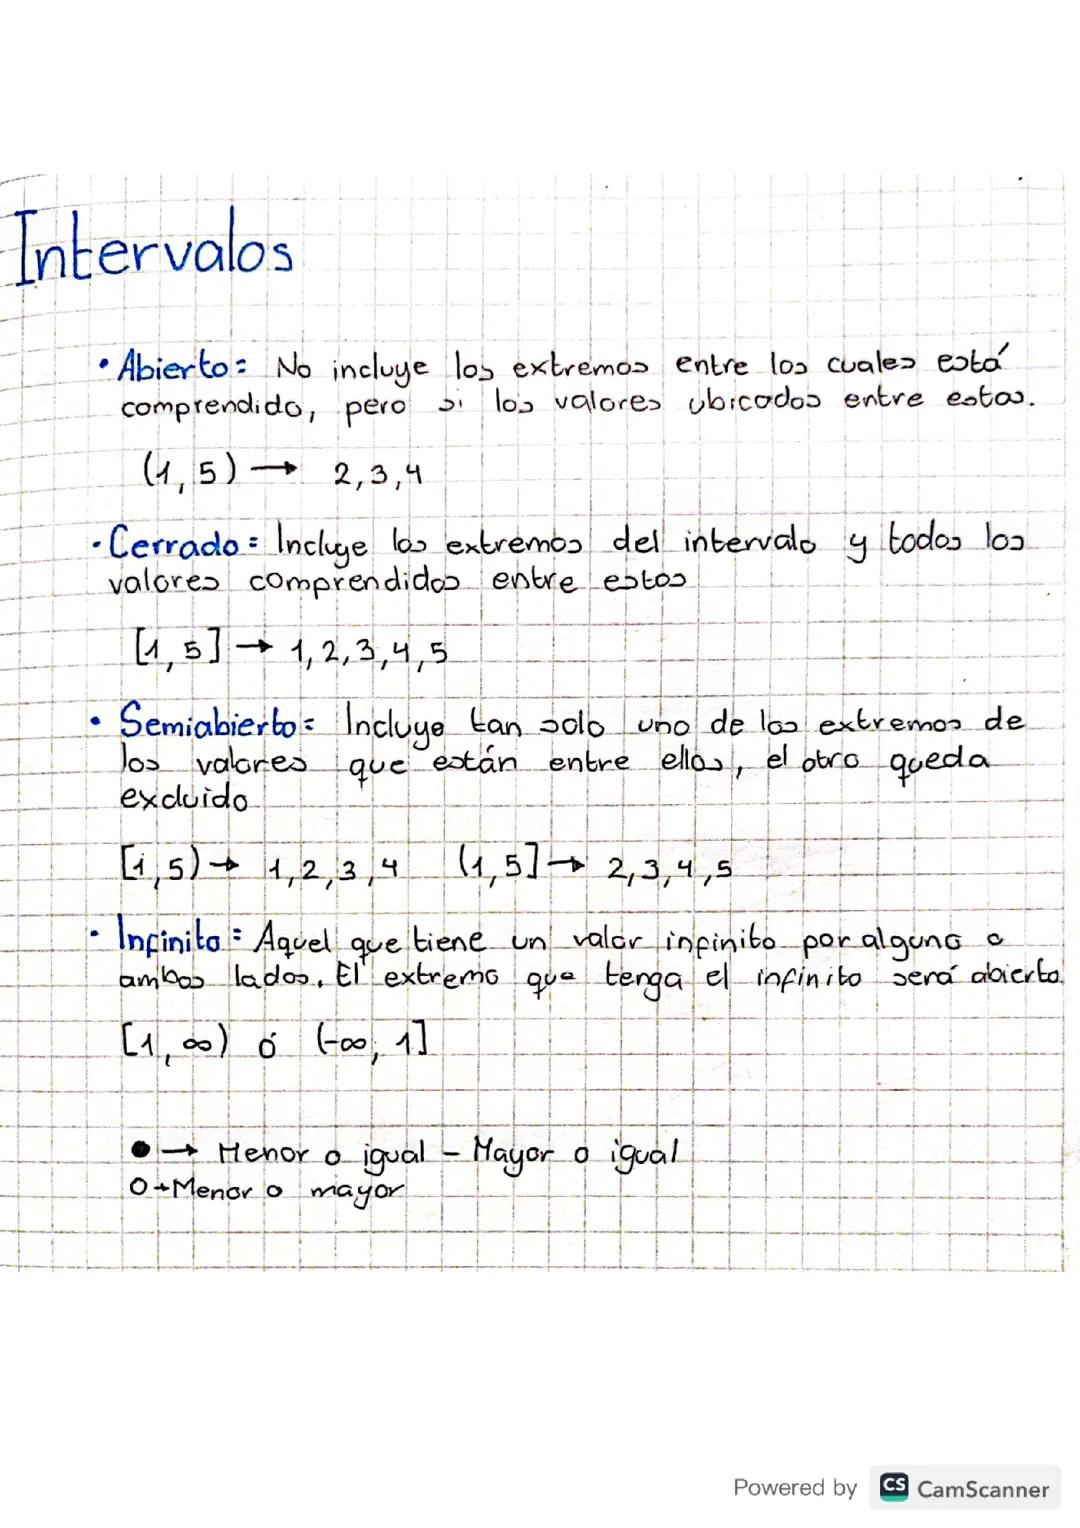 Intervalos
• Abierto: No incluye los extremos entre los cuales está
comprendido, pero si los valores ubicados entre estos.
(1, 5) → 2,3,4
• Cerrado: Incluye los extremos del intervalo y todos los
valores comprendidos entre estos
[1, 5] → 1, 2, 3, 4, 5
• Semiabierto: Incluye tan solo uno de los extremos de
los valores que están entre ellos, el otro queda
excluido
[1, 5) → 1, 2, 3, 4 (1, 5] → 2, 3, 4, 5
• Infinito: Aquel que tiene un valor infinito por alguno o
ambos lados. El extremo que tenga el infinito será abierto.
[1, ∞) ó (-∞, 1]
● → Menor o igual - Mayor o igual
○ → Menor o mayor
Powered by CS CamScanner